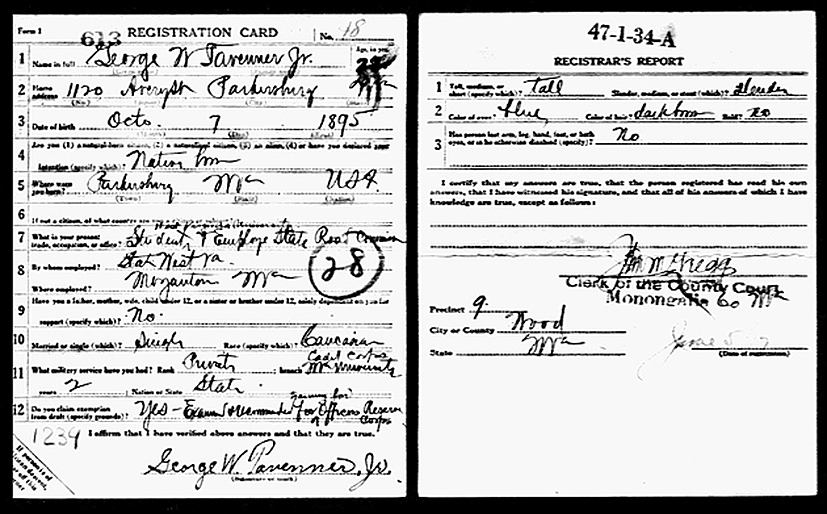 Form 1 613 REGISTRATION CARD No. 18
1 Name in full George W Tavenner Jr. Age, in yrs.
2 Home address 1120 Avery St Parkersburg
(No.) (Street) (City) (State)
3 Date of birth Octo. 7 1895
(Month) (Day) (Year)
4 Are you (1) a natural-born citizen, (2) a naturalized citizen, (3) an alien, (4) or have you declared your
intention (specify which)? Native born
5 Where were you born? Parkersburg USA
(Town) (State) (Nation)
6 If not a citizen, of what country are you
7 What is your present trade, occupation, or office? Student & Employe State Road Commission
8 By whom employed? State West Va.
Where employed? Morganton
28
9 Have you a father, mother, wife, child under 12, or a sister or brother under 12, solely dependent on you for
support (specify which)? No.
10 Married or single (which)? Single Race (specify which)? Caucasian
11 What military service have you had? Rank Private ; branch Cadet Corps
years 2 ; Nation or State State
12 Do you claim exemption from draft (specify grounds)? Yes – Examd & recommended for training for Officers Reserve Corps
1239 I affirm that I have verified above answers and that they are true.
George W. Tavenner, Jr.
(Signature or mark)
If person is of African descent,
47-1-34-A
REGISTRAR'S REPORT
1 Tall, medium, or short (specify which)? Tall Slender, medium, or stout (which)? Slender
2 Color of eyes? blue Color of hair? dark brown Bald? No
3 Has person lost arm, leg, hand, foot, or both
eyes, or is he otherwise disabled (specify)? No
I certify that my answers are true, that the person registered has read his own
answers, that I have witnessed his signature, and that all of his answers of which I have
knowledge are true, except as follows:
Clerk of the County Court
Monongalia Co
Precinct 9
City or County Wood
State
June 5
(Date of registration)